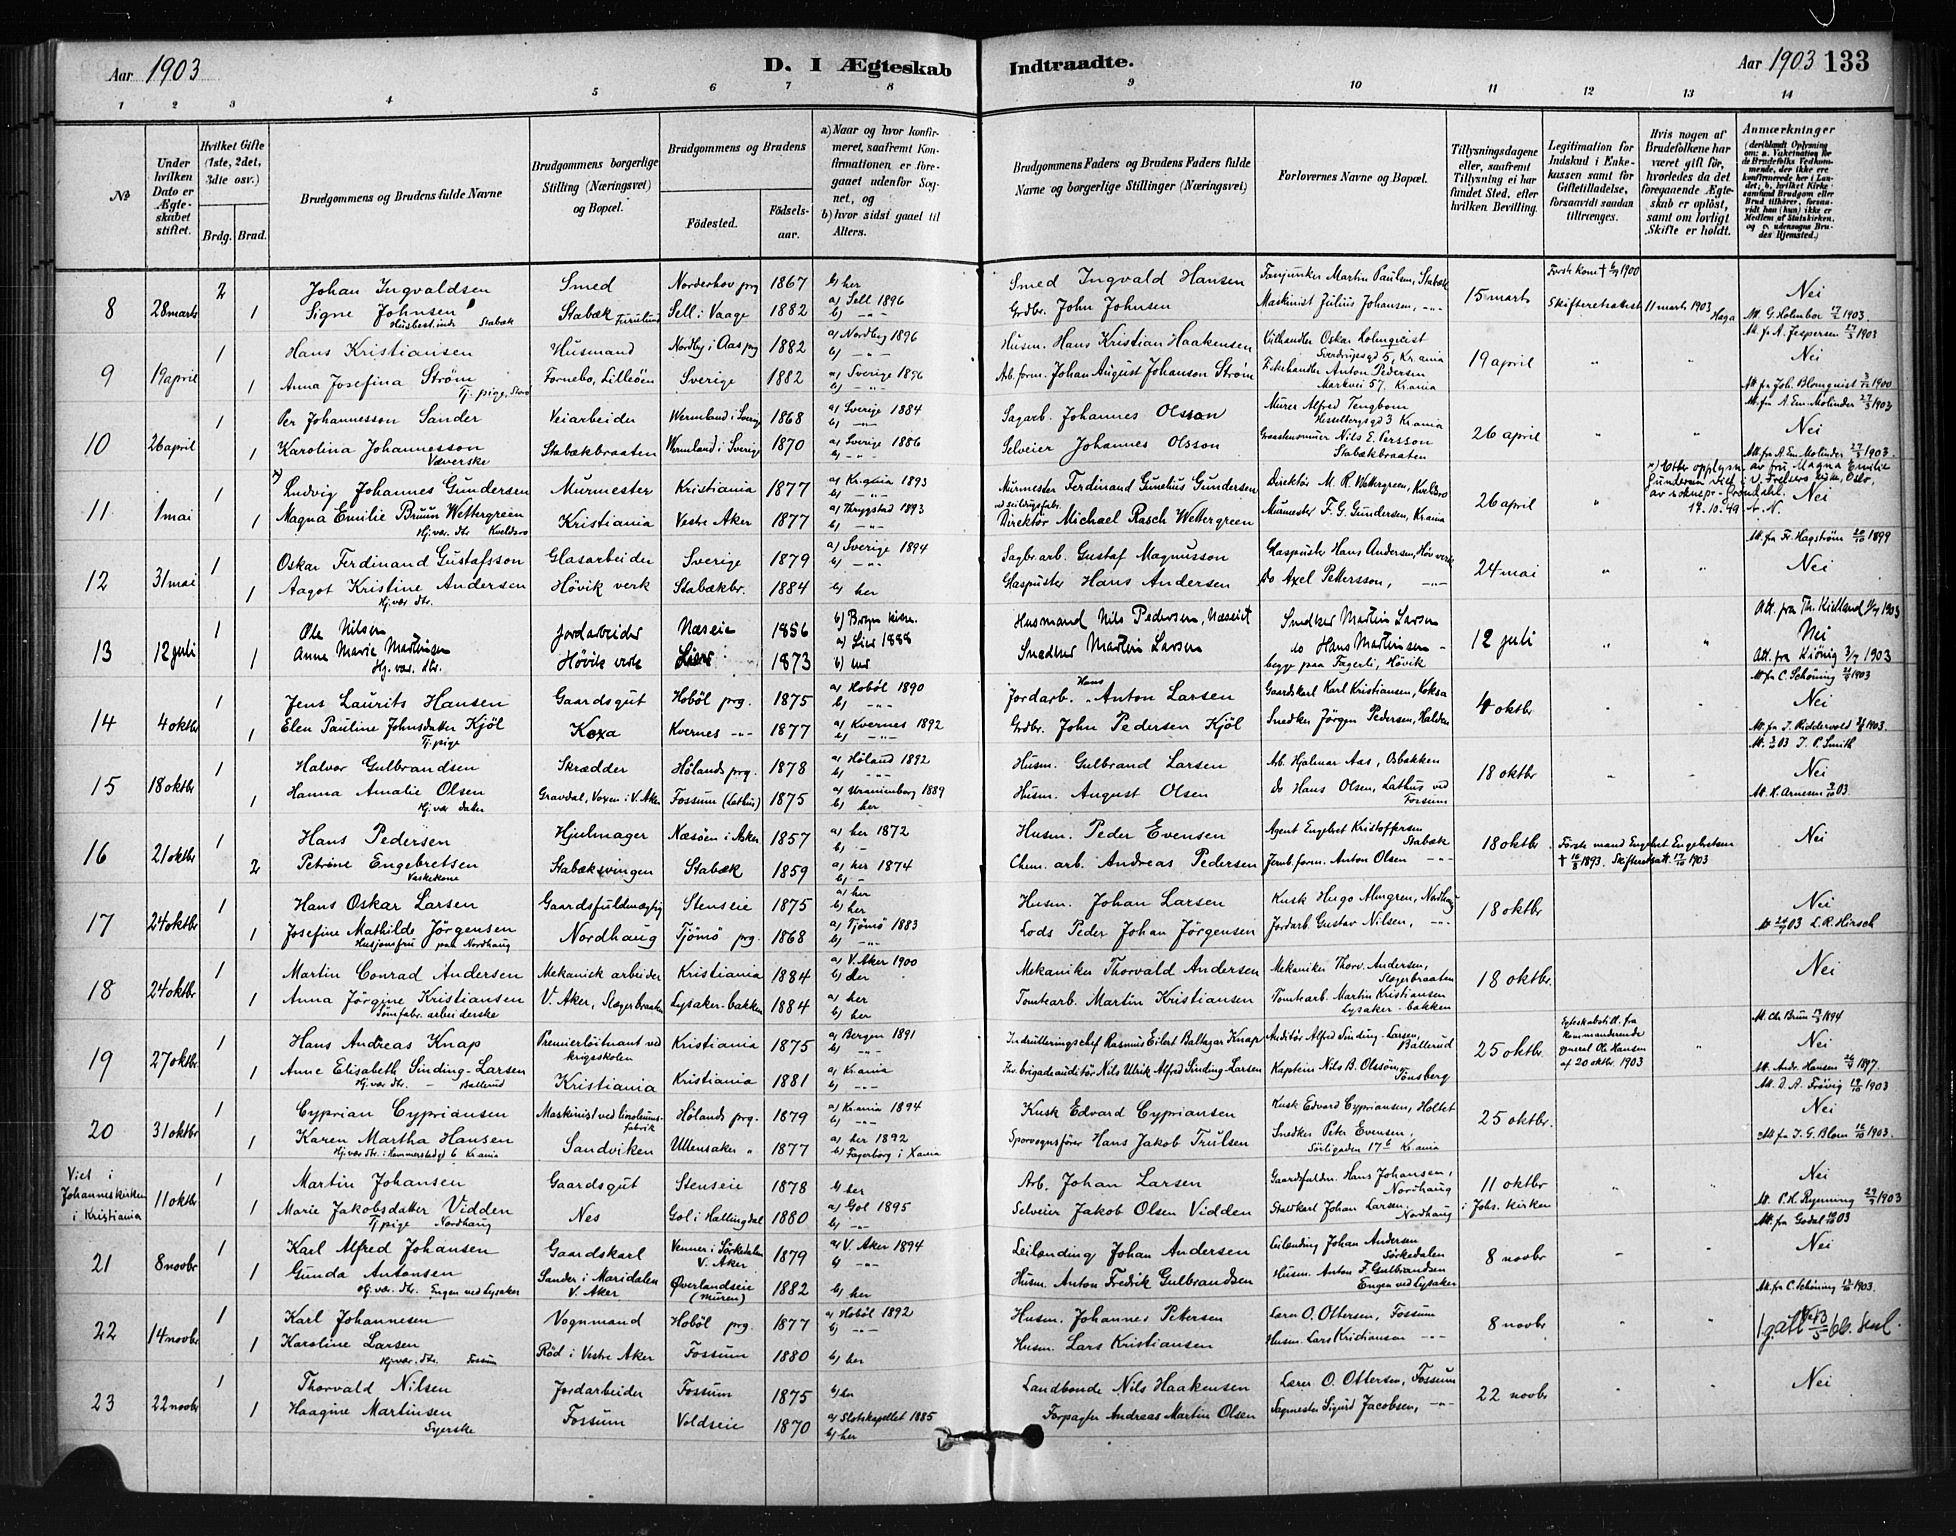 Aar 1903
D. I Ægteskab Indtraadte.
Aar 1903 133
1 2 3 4 5 6 7 8 9 10 11 12 13 14
№
Under hvilken Dato er Ægteskabet stiftet.
Hvilket Gifte (1ste, 2det, 3die osv.)
Brdg. Brud.
Brudgommens og Brudens fulde Navne
Brudgommens borgerlige Stilling (Næringsvei) og Bopæl.
Brudgommens og Brudens
Fødested.
Fødselsaar.
a) Naar og hvor konfirmeret, saafremt Konfirmationen er foregaaet udenfor Sognet, og
b) hvor sidst gaaet til Alters.
Brudgommens Faders og Brudens Faders fulde Navne og borgerlige Stillinger (Næringsvei)
Forlovernes Navne og Bopæl.
Tillysningsdagene eller, saafremt Tillysning ei har fundet Sted, efter hvilken Bevilling.
Legitimation for Indskud i Enkekassen samt for Giftetilladelse, forsaavidt saadan tiltrænges.
Hvis nogen af Brudefolkene har været gift før, hvorledes da det foregaaende Ægteskab er opløst, samt om lovligt Skifte er holdt.
Anmærkninger (deriblandt Oplysning om: a. Vakcination for de Brudefolks Vedkommende, der ikke ere konfirmerede her i Landet; b. hvilket Kirkesamfund Brudgom eller Brud tilhører, forsaavidt han (hun) ikke er Medlem af Statskirken, og c. udensogns Brudes Hjemsted.)
8 28 marts 2 Johan Ingvaldsen Smed Norderhov prg 1867 b) her Smed Ingvald Hansen Fanjunker Martin Paulsen, Stabæk 15 marts Første kone † 1900 Nei
1 Signe Johnsen Stabæk Furulund Sell i Vaage 1882 a) Sell 1896 b) -"- Grdbr. John Johnsen Maskinist Julius Johansen, -"- Skifteretsattest 11 marts 1903 Haga Att. G. Holmboe 1903
Husbest.inde Stabæk
Att. fra A. Jespersen 1903
9 19 april 1 Hans Kristiansen Husmand Nordby i Aas prg 1882 a) Nordby 1896 b) -"- Husm. Hans Kristian Haakensen Vilthandler Oskar Holmqvist Sverdrupsgd 5, Kr.ania 19 april Nei
1 Anna Josefina Strøm Fornebo, Lilleøen Sverige 1882 a) Sverige 1896 b) -"- Arb. form. Johan August Johanson Strøm Fiskehandler Anton Pedersen Markvei 57, Kr.ania Att. fra Joh. Blomquist 1900
Tj. pige, Stord
Att. fra A. Em. Molinder 27/3 1903
10 26 april 1 Per Johannesson Sander Veiarbeider Wermland i Sverig 1868 a) Sverige 1884 b) -"- Sagarb. Johannes Olsson Murer Alfred Tengbom Hesselbergsgd 3 Kr.ania 26 april Nei
1 Karolina Johannesson Stabækbraaten Wermland i Sverig 1870 a) Sverige 1886 b) -"- Selveier Johannes Olsson Graastensmurer Nils E. Persson Stabækbraaten Att. fra A. Em. Molinder 27/3 1903
Væverske
11 1 mai 1 x) Ludvig Johannes Gundersen Murmester Kristiania 1877 a) Kr.ania 1893 b) -"- Murmester Ferdinand Gunelius Gundersen Direktør M. R. Wettergreen, Kveldsro 26 april x) Etter opplysn. av fru Magna Emilie Gundersen viet i V. Frelsers kirke, Oslo, av sokнepr. Grøndahl. Nei
1 Magna Emilie Bruun Wettergreen Kristiania Vestre Aker 1877 a) Thrygstad 1893 b) -"- Direktør ved seildugsfabr. Michael Rasch Wettergreen Murmester F. G. Gundersen, Kr.ania 19.10.49 A. N.
Hj.vær. dtr. Kveldsro
Att. fra Fr. Hagstrøm 1899
12 31 mai 1 Oskar Ferdinand Gustafsson Glasarbeider Sverige 1879 a) Sverige 1894 b) -"- Sagbr.arb. Gustaf Magnusson Glaspuster Hans Andersen, Høv.verk 24 mai Nei
1 Aagot Kristine Andersen Høvik verk Stabækbr. 1884 b) her Glaspuster Hans Andersen Do Axel Pettersson, -"-
Hj.vær. dtr.
Att. fra Th. Kielland 1903
13 12 juli 1 Ole Nilsen Jordarbeider Næseie 1856 b) Husmand Nils Pedersen, Næseiet Snedker Martin Larsen 12 juli Nei
1 Anne Marie Martinsen Høvik verk Lier 1873 a) Lier 1888 b) her Snedker Martin Larsen do Hans Martinsen - begge paa Fagerli, Høvik Att. fra Kiønig 3/7 1903
Hj. vær. dtr.
Att fra C. Schøning 1903
14 4 oktbr 1 Jens Laurits Hansen Gaardsgut Hobøl prg. 1875 a) Hobøl 1890 b) -"- Jordarb. Hans Anton Larsen Gaardskarl Karl Kristiansen, Koksa 4 oktbr Nei
1 Elen Pauline Johnsdatter Kjøl Koxa Kvernes -"- 1877 a) Kvernes 1892 b) -"- Grdbr. John Pedersen Kjøl Snedker Jørgen Pedersen, Halden Att. fra J. Ridderwold 1903.
Tj.pige
Att. 03 T. P. Smith
15 18 oktbr 1 Halvor Gulbrandsen Skrædder Hølands prg. 1878 a) Høland 1892 b) -"- Husm. Gulbrand Larsen Arb. Hjalmar Aas, Osbakken 18 oktbr Nei
1 Hanna Amalie Olsen Gravdal, Voxen i V. Aker Fossum (Lathus) 1875 a) Uranienborg 1889 b) her Husm. August Olsen do Hans Olsen, Lathus ved Fossum Att. K. Arnesen 03
Hj.vær. datter
16 21 oktbr 1 Hans Pedersen Hjulmager Næsøen i Asker 1857 a) her 1872 b) - Husm. Peder Evensen Agent Engebret Kristoffersen Stabæk 18 oktbr Første mand Engebret Engebretsen Nei
2 Petrine Engebretsen Stabæksvingen Stabæk 1859 a) her 1874 b) - Chem. arb. Andreas Pedersen Jernb.form. Anton Olsen -"- † 1893. Skifteretsatt. 17/10 1903
Vaskekone
17 24 oktbr 1 Hans Oskar Larsen Gaardsfuldmægtig Stenseie 1875 a) her b) her Husm. Johan Larsen Kusk Hugo Almgren, Nordhaug 18 oktbr Nei
1 Josefine Mathilde Jørgensen Nordhaug Tjømø prg. 1868 a) Tjømø 1883 b) -"- Lods Peder Johan Jørgensen Jordarb. Gustav Nilsen, -"- 03 L. R. Hirsch
Husjomfru paa Nordhaug
18 24 oktbr 1 Martin Conrad Andersen Mekanisk arbeider Kristiania 1884 a) V. Aker 1900 b) der Mekaniker Thorvald Andersen Mekaniker Thorv. Andersen, Slagerbraaten 18 oktbr. Nei
1 Anna Jørgine Kristiansen V. Aker, Slagerbraaten Lysaker-bakken 1884 a) her b) her Tomtearb. Martin Kristiansen Tomtearb. Martin Kristiansen Lysaker-bakken
Sømfabr. arbeiderske
Att. Chr. Bruun 1894
19 27 oktbr 1 Hans Andreas Knap Premierløitnant ved krigsskolen Kristiania 1875 a) Bergen 1891 b) -"- Indrulleringschef Rasmus Eilert Baltazar Knap Auditør Alfred Sinding-Larsen, Ballerud 25 oktbr. Egteskabstill. fra kommanderende general Ole Hansen af 20 oktbr. 1903 Nei
1 Anne Elisabeth Sinding-Larsen Kristiania Kristiania 1881 a) Kr.ania b) -"- Fhv. brigadeauditør Nils Ulrik Alfred Sinding-Larsen Kaptein Nils B. Olssøn, Tønsberg Att. Andr. Hansen 1897.
Hj.vær. dtr. - Ballerud
Att. D. A. Frøvig 1903
20 31 oktbr 1 Cyprian Cypriansen Maskinist ved linoleumsfabrik Hølands prg. 1879 a) Kr.ania 1894 b) -"- Kusk Edvard Cypriansen Kusk Edvard Cypriansen, Holtet 25 oktbr. Nei
1 Karen Martha Hansen Sandviken Ullensaker " 1877 a) her 1892 b) Fagerborg i Xania Sporvognsfører Hans Jakob Trulsen Snedker Peter Evensen, Sørligaden 17 b Kr.ania Att fra J. G. Blom 1903.
Hj.vær. dtr. i Hammerstadgd 6 Kr.ania
Viet i Johanneskirken i Kristiania 11 oktbr 1 Martin Johansen Gaardsgut Stenseie 1878 b) her Arb. Johan Larsen Gaardsfuldm. Hans Johansen, Nordhaug 11 oktbr i Johs. kirken Nei
1 Marie Jakobsdatter Vidden Nes Gol i Hallingdal 1880 a) Gol 1895 b) -"- Selveier Jakob Olsen Vidden Staldkarl Johan Larsen, Nordhaug Att. P. H. Rynning 1903
Tj.pige Nordhaug
Att. fra Godal 03
21 8 novbr 1 Karl Alfred Johansen Gaardskarl Venner i Sørkedalen V. Aker 1879 a) V. Aker 1894 b) -"- Leilending Johan Andersen Leilending Johan Andersen Sørkedalen 8 novbr Nei
1 Gunda Antonsen Sander i Maridalen V. Aker Øverlandseie (Muren) 1882 b) her Husm. Anton Fredrik Gulbrandsen Husm. Anton F. Gulbrandsen Engen ved Lysaker
Hj.vær. dtr. Engen ved Lysaker
Att. fra C. Schøning 1903.
22 14 novbr 1 Karl Johannesen Vognmand Hobøl prg. 1877 a) Hobøl 1892 b) -"- Husm. Johannes Petersen Lærer O. Ottersen, Fossum 8 novbr
1 Karoline Larsen Rød i Vestre Aker Fossum 1880 b) her Husm. Lars Kristiansen Husm. Lars Kristiansen -"-
Hj.vær. dtr. Fossum
23 22 novbr 1 Thorvald Nilsen Jordarbeider Fossum 1875 b) her Landbonde Nils Haakensen Lærer O. Ottersen, Fossum 22 novbr Nei
1 Haagine Martinsen Fossum Voldseie 1870 a) Slotskapellet 1885 b) her Forpagter Andreas Martin Olsen Sagmester Sigurd Jacobsen, -"-
Syerske